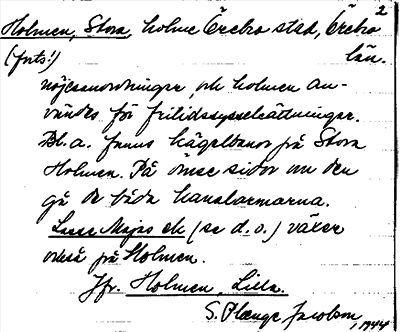 2
Holmen, Stora, holme Örebro stad, Örebro
(forts.) län.
nöjesanordningar, och holmen an-
vändes för fritidssysselsättningar.
Bl. a. funnos kägelbanor på Stora
Holmen. På ömse sidor om den
gå de båda kanalarmarna.
Lasse Majas ek (se d. o.) växer
också på Holmen.
Jfr. Holmen, Lilla.
S. Jacobson, 1944